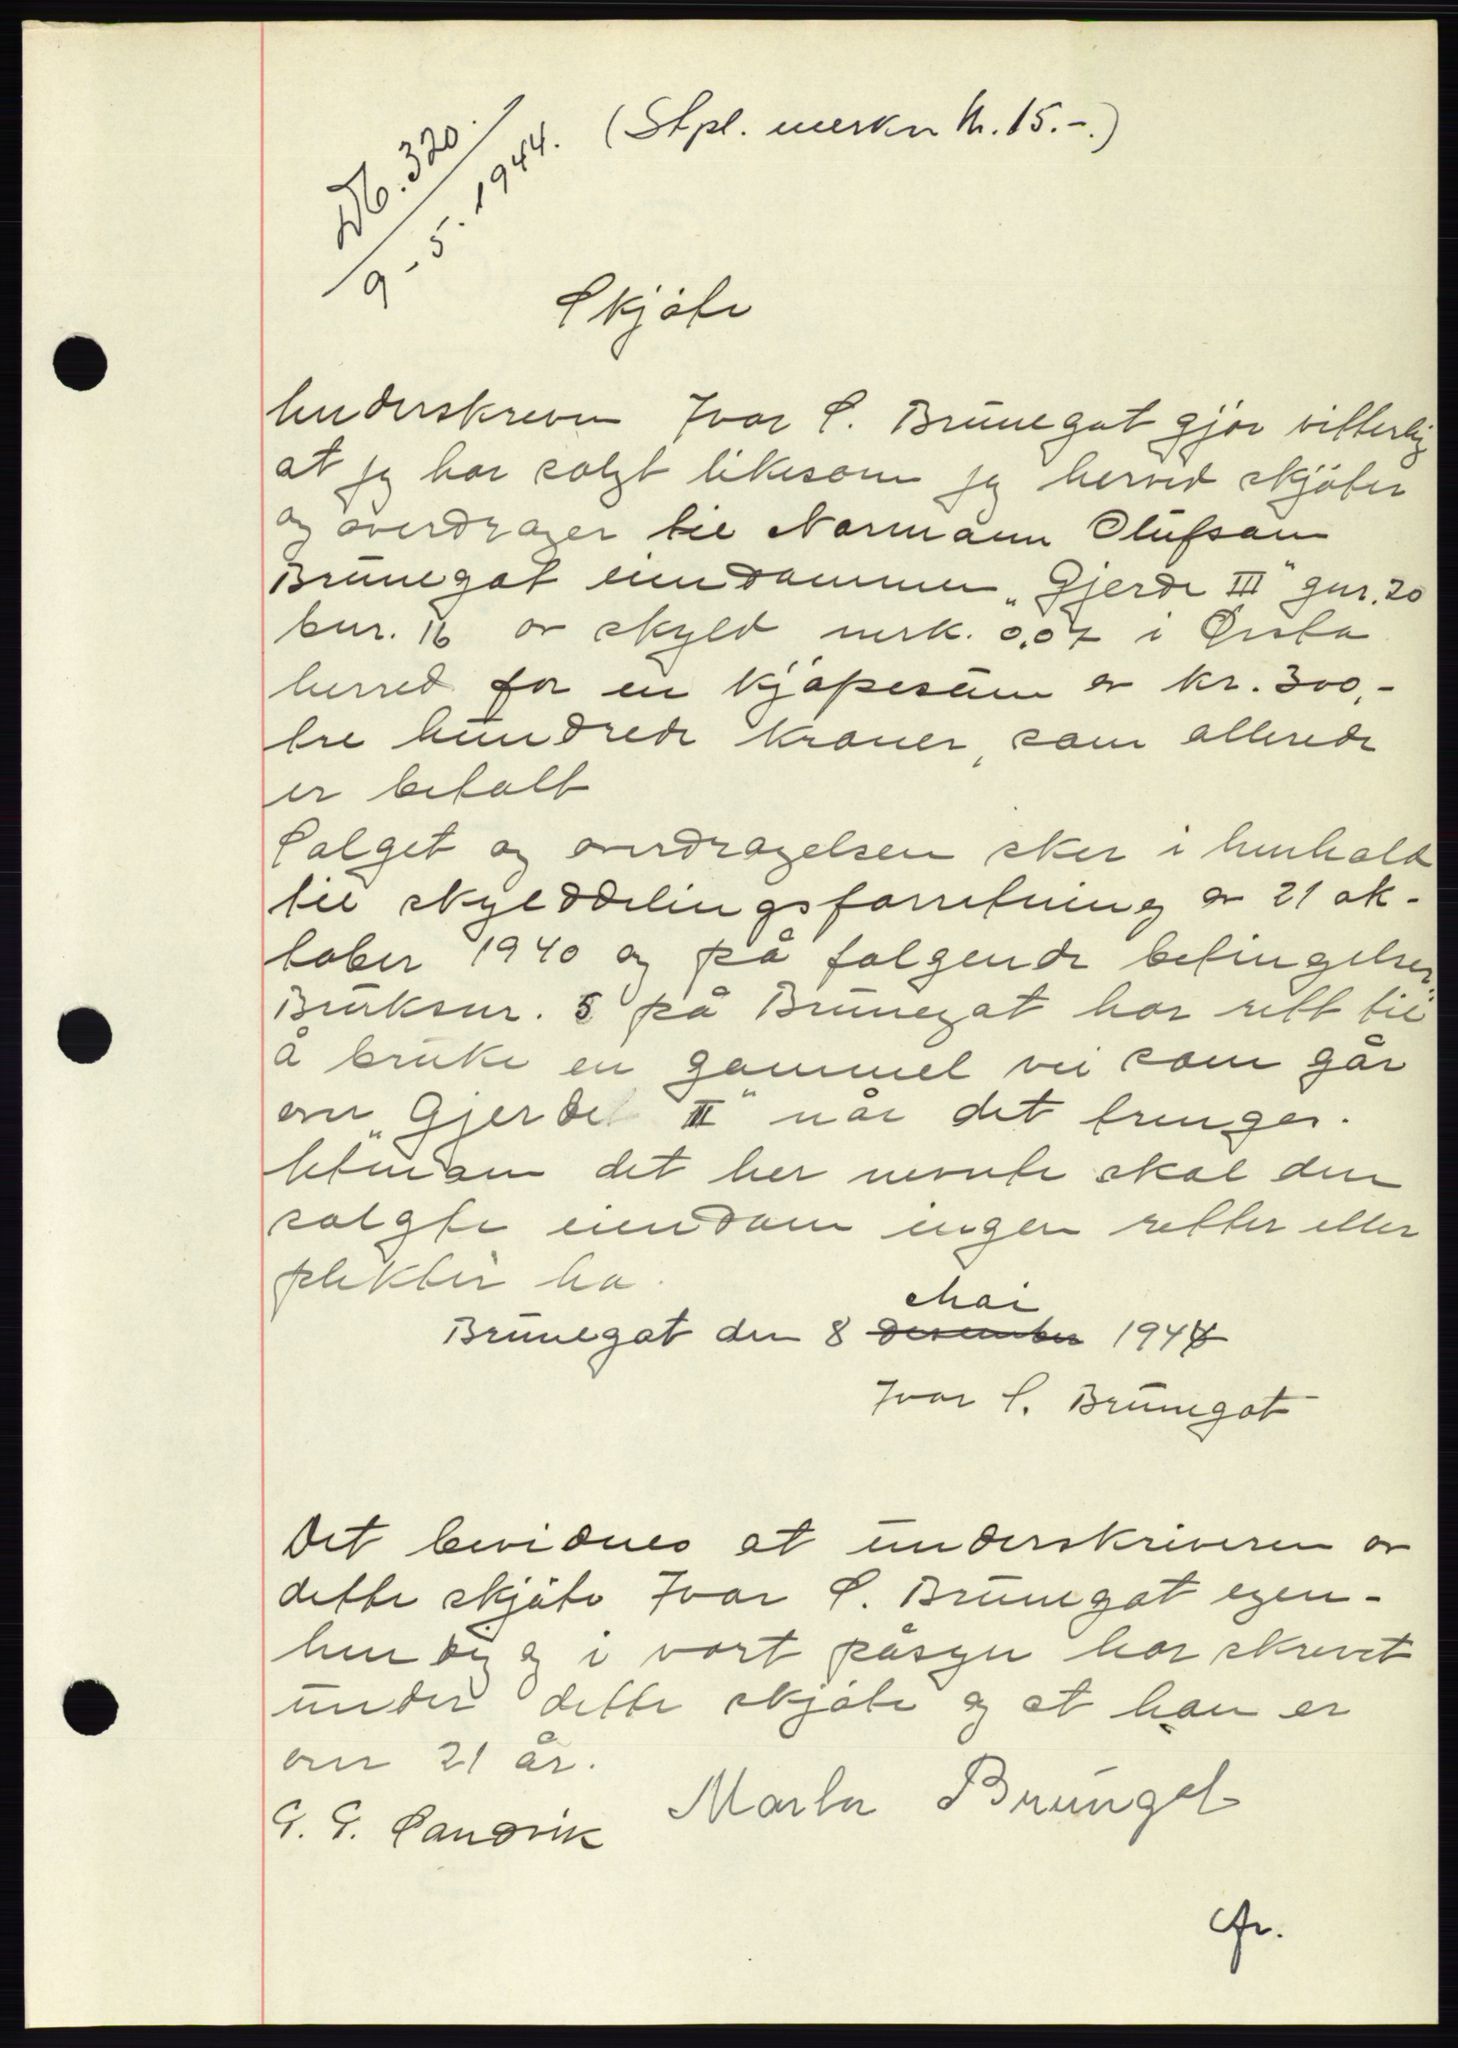 Db. 320.
9-5. 1944.
(Stpl. merker kr. 15.-.)
Skjøte
Underskreven Ivar S. Brunegot gjør vitterlig
at jeg har solgt likesom jeg herved skjøter
og overdrager til Normann Olufson
Brunegot eiendommen „Gjerde III" gnr. 20
bnr. 16 av skyld mrk. 0.07 i Ørsta
herred for en kjøpesum av kr. 300,-
tre hundrede kroner, som allerede
er betalt
Salget og overdragelsen sker i henhold
til skylddelingsforretning av 21 ok-
tober 1940 og på følgende betingelser:
Bruksnr. 5 på Brunegot har rett til
å bruke en gammel vei som går
over „Gjerde III" når det trenges.
Utenom det her nevnte skal den
solgte eiendom ingen retter eller
plikter ha.
Mai
Brunegot den 8 desember 1944
Ivar S. Brunegot
Det bevidnes at underskriveren av
dette skjøte Ivar S. Brunegot egen-
hendig og i vort påsyn har skrevet
under dette skjøte og at han er
over 21 år.
G. G. Sandvik Marta Brungot